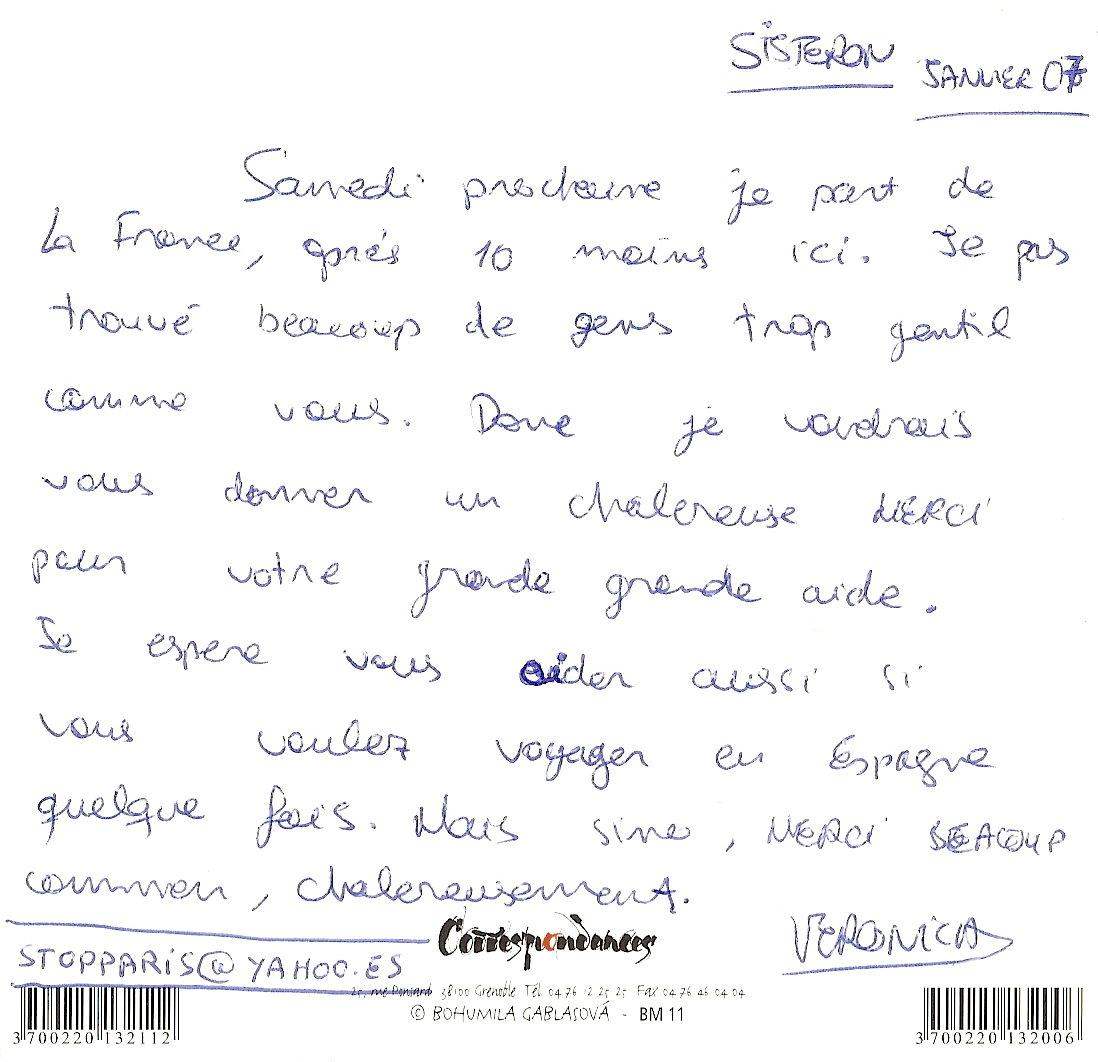 SISTERON JANVIER 07
Samedi prochaine je part de
la France, après 10 moins ici. Je pas
trouvé beaucoup de gens trop gentil
comme vous. Donc je vordrais
vous donner un chalereuse MERCI
pour votre grande grande aide.
Je espere vous aider aussi si
vous voulez voyager en Espagne
quelque fois. Mais sino, MERCI BEACOUP
commen, chalereusement.
VERONICA
STOPPARIS@YAHOO.ES
Correspondances
20, rue Ponsard 38100 Grenoble Tél 04 76 12 25 25 Fax 04 76 46 04 04
© BOHUMILA GABLASOVÁ - BM 11
3 700220 132112
3 700220 132006